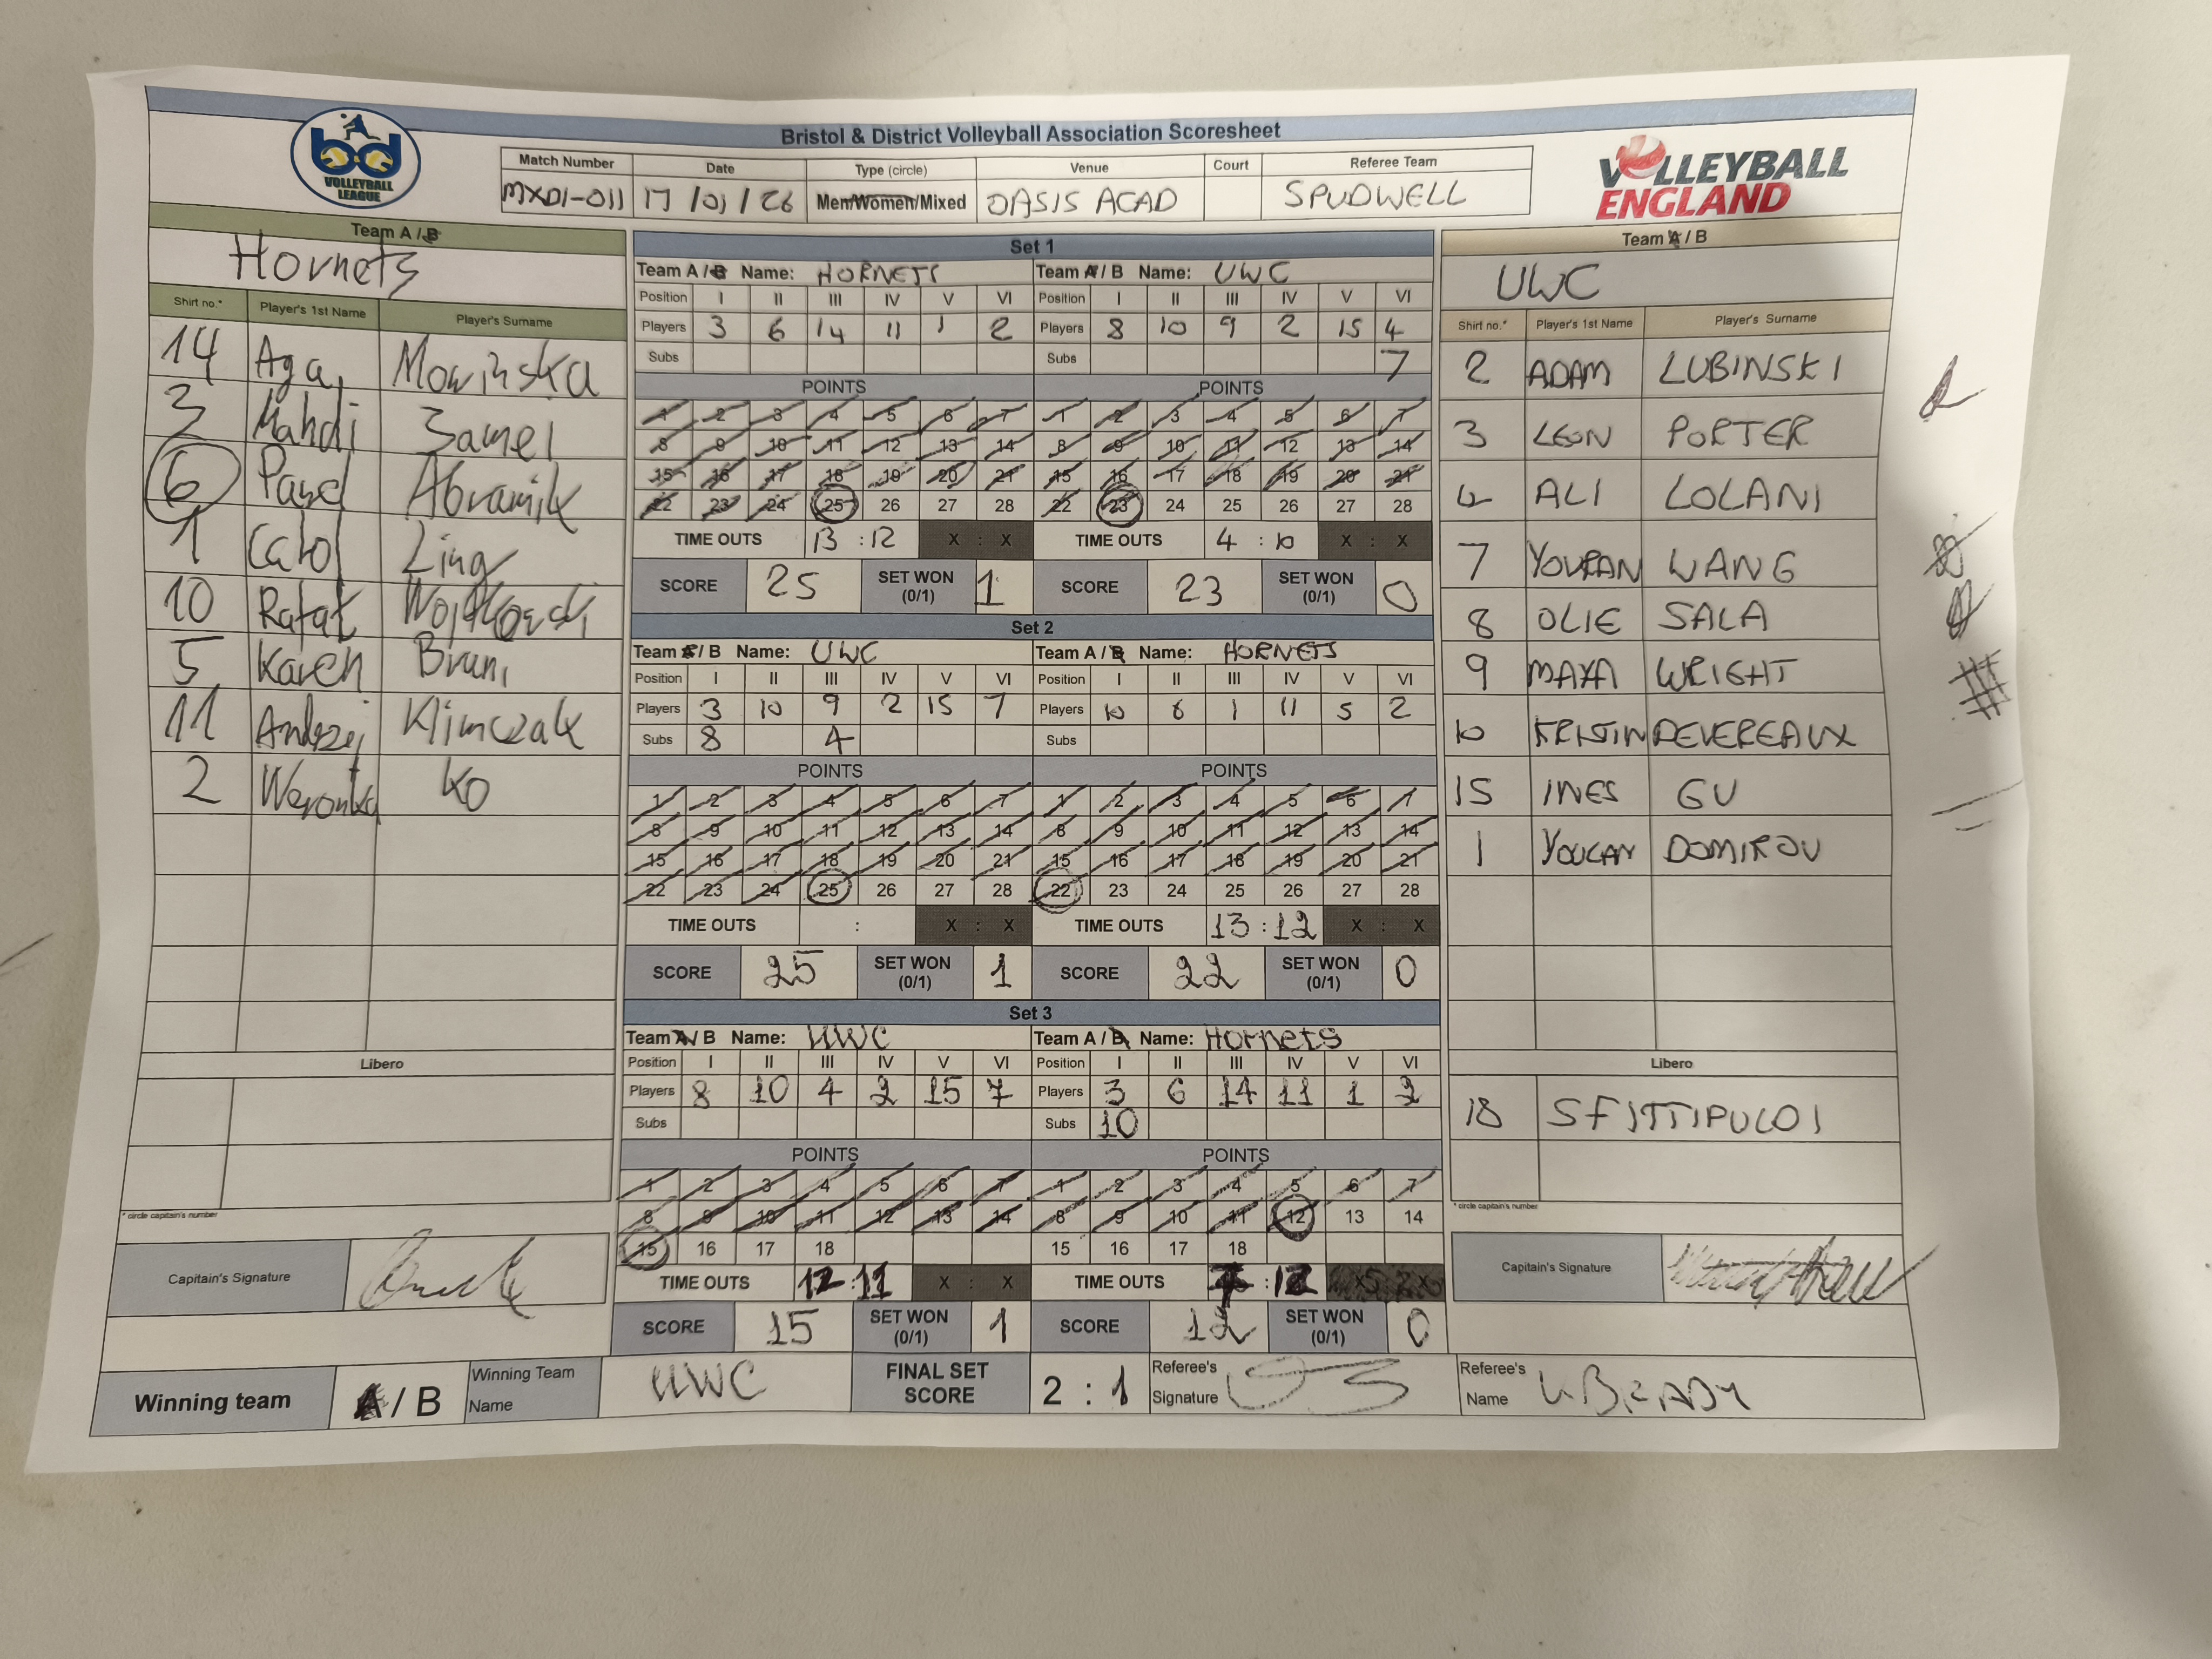 Bristol & District Volleyball Association Scoresheet
bd VOLLEYBALL LEAGUE
VOLLEYBALL ENGLAND
Match Number Date Type (circle) Venue Court Referee Team
MXD1-011 17/01/26 Men/Women/Mixed OASIS ACAD SPUDWELL
Team A / B
Hornets
Shirt no.* Player's 1st Name Player's Surname
14 Aga Mowinska
3 Mahdi
6 Pawel
1 Carol Ling
10 Rafał
5 Karen Bruni
11 Andrzej Klimczak
2 Weronika Ko
Libero
* circle captain's number
Capitain's Signature
Set 1
Team A / B Name: HORNETS Team A / B Name: UWC
Position I II III IV V VI Position I II III IV V VI
Players 3 6 14 11 1 2 Players 8 10 9 2 15 4
Subs Subs 7
POINTS POINTS
1 2 3 4 5 6 7 1 2 3 4 5 6 7
8 9 10 11 12 13 14 8 9 10 11 12 13 14
15 16 17 18 19 20 21 15 16 17 18 19 20 21
22 23 24 25 26 27 28 22 23 24 25 26 27 28
TIME OUTS 13 : 12 X : X TIME OUTS 4 : 10 X : X
SCORE 25 SET WON (0/1) 1 SCORE 23 SET WON (0/1) 0
Set 2
Team A / B Name: UWC Team A / B Name: HORNETS
Position I II III IV V VI Position I II III IV V VI
Players 3 10 9 2 15 7 Players 10 6 1 11 5 2
Subs 8 4 Subs
POINTS POINTS
1 2 3 4 5 6 7 1 2 3 4 5 6 7
8 9 10 11 12 13 14 8 9 10 11 12 13 14
15 16 17 18 19 20 21 15 16 17 18 19 20 21
22 23 24 25 26 27 28 22 23 24 25 26 27 28
TIME OUTS : X : X TIME OUTS 13 : 12 X : X
SCORE 25 SET WON (0/1) 1 SCORE 22 SET WON (0/1) 0
Set 3
Team A / B Name: UWC Team A / B Name: Hornets
Position I II III IV V VI Position I II III IV V VI
Players 8 10 4 2 15 7 Players 3 6 14 11 1 2
Subs Subs 10
POINTS POINTS
1 2 3 4 5 6 7 1 2 3 4 5 6 7
8 9 10 11 12 13 14 8 9 10 11 12 13 14
15 16 17 18 15 16 17 18
TIME OUTS 12 : 11 X : X TIME OUTS : 12
SCORE 15 SET WON (0/1) 1 SCORE 12 SET WON (0/1) 0
Team A / B
UWC
Shirt no.* Player's 1st Name Player's Surname
2 ADAM LUBINSKI
3 LEON PORTER
4 ALI LOLANI
7 YOURAN WANG
8 OLIE SALA
9 MAYA WRIGHT
10 KRISTIN DEVEREAUX
15 INES GU
1 YOUCAN DOMIROU
Libero
18 S FITTIPULDI
* circle captain's number
Capitain's Signature
Winning team A / B Winning Team Name UWC FINAL SET SCORE 2 : 1 Referee's Signature Referee's Name BREADY